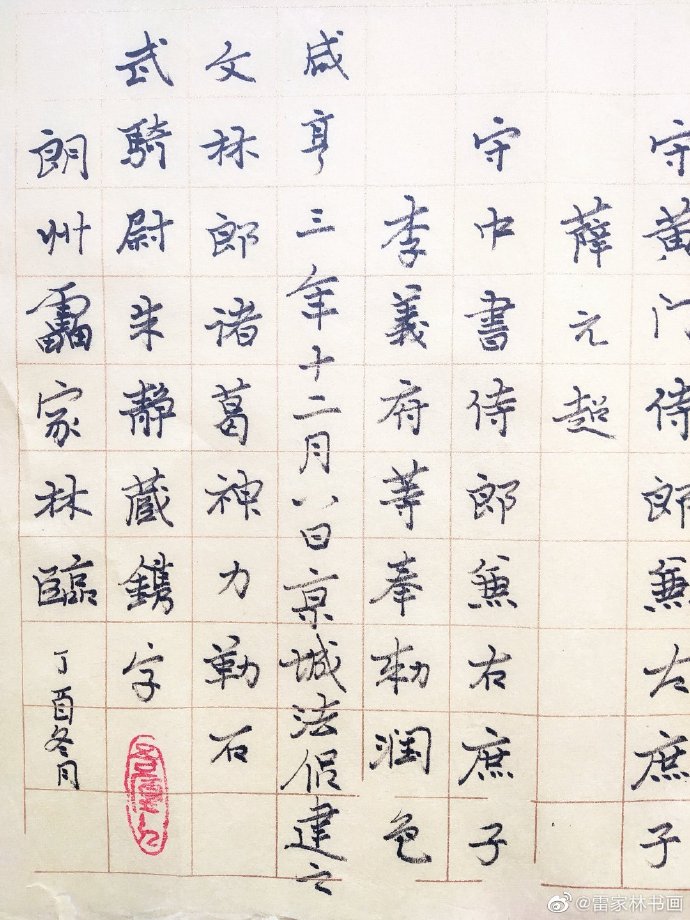 守黄门侍郎兼左庶子
薛元超
守中書侍郎兼右庶子
李義府等奉勅潤色
咸亨三年十二月八日京城法侣建立
文林郎诸葛神力勒石
武騎尉朱静藏鐫字
朗州靁家林臨
丁酉冬月
@雷家林书画